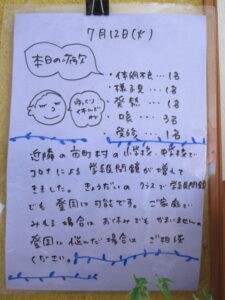 7月12日(火)
本日の病欠
・体調不良…1名
・様子見…1名
・発熱…1名
・咳…3名
・登録…1名
ゆっくり
休んだ
近隣の市町村の小学校、中学校で
コロナによる学級閉鎖が増えて
きました。きょうだいのクラスで学級閉鎖
でも登園は可能です。ご家庭で
みれる場合はお休みでもかまいません。
登園に悩んだ場合はご相談
ください。